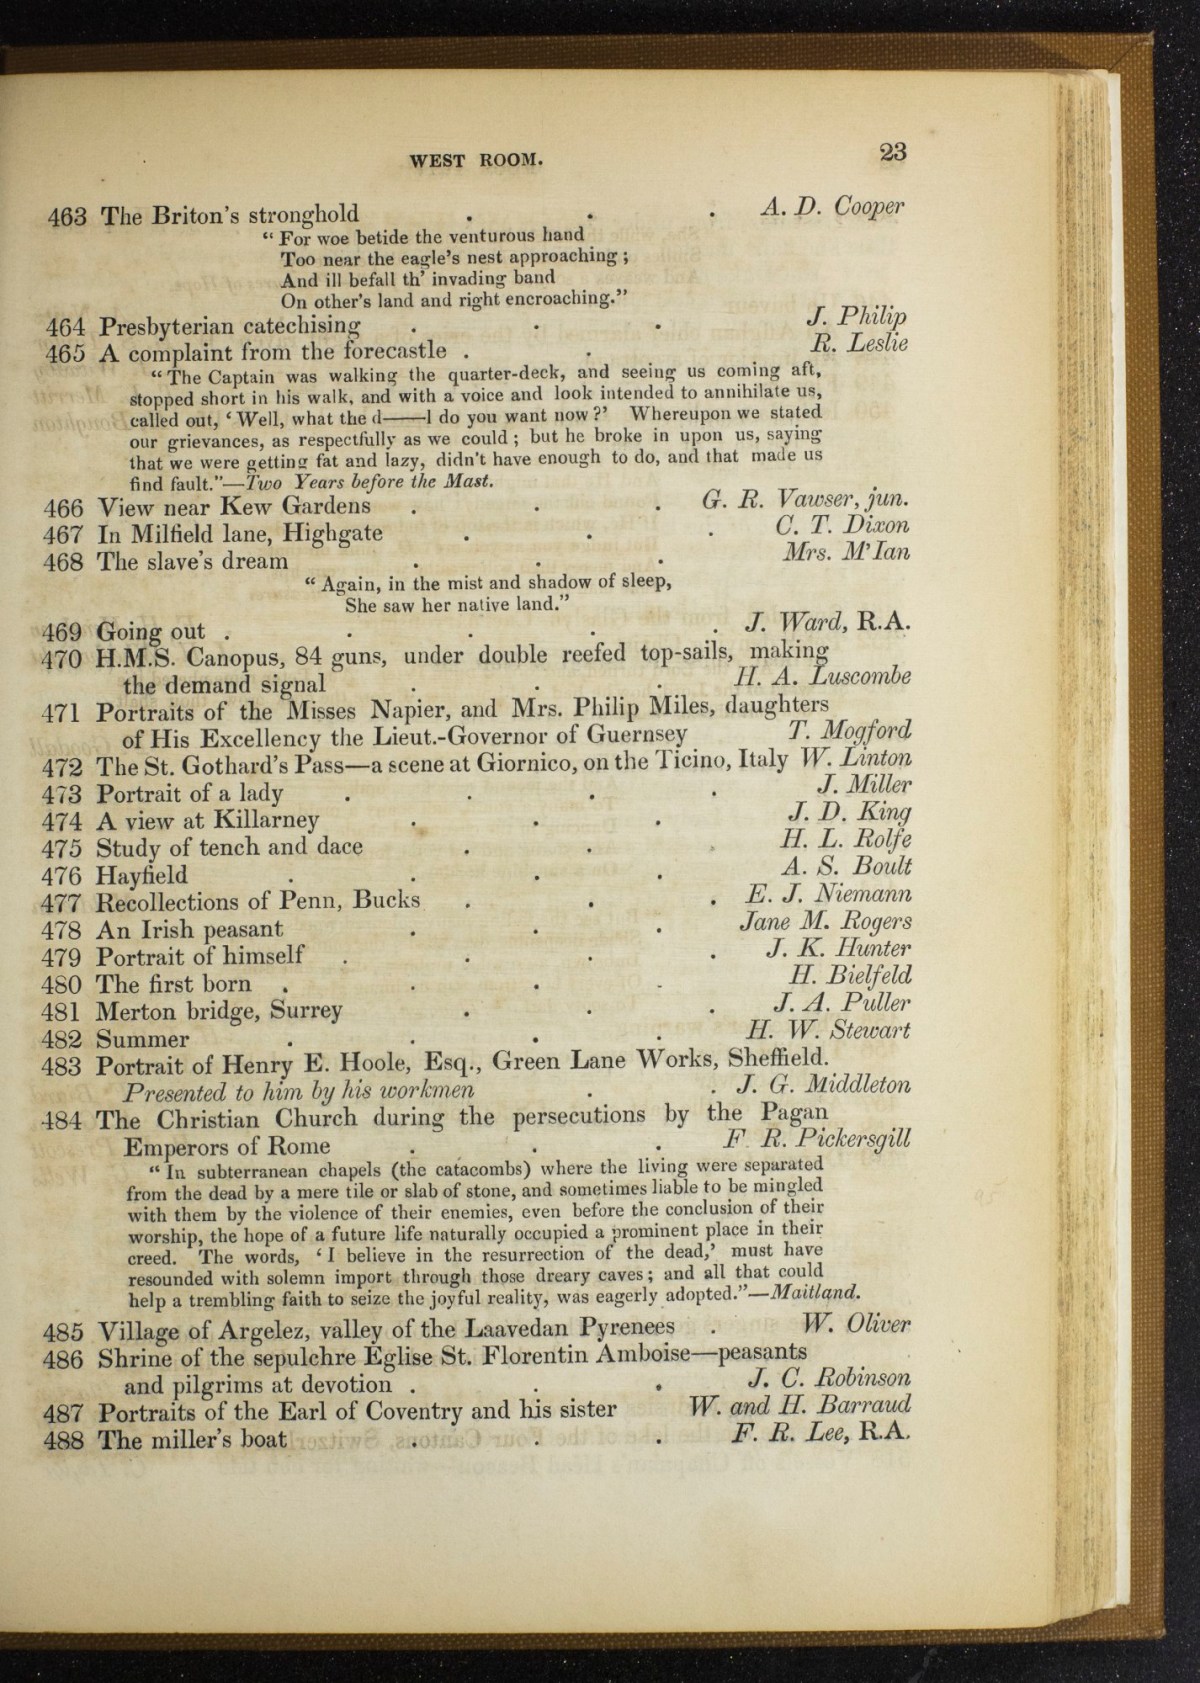 WEST ROOM. 23
463 The Briton's stronghold . . . A. D. Cooper
“ For woe betide the venturous hand
Too near the eagle's nest approaching ;
And ill befall th' invading band
On other's land and right encroaching.”
464 Presbyterian catechising . . . J. Philip
465 A complaint from the forecastle . . R. Leslie
“ The Captain was walking the quarter-deck, and seeing us coming aft,
stopped short in his walk, and with a voice and look intended to annihilate us,
called out, ‘ Well, what the d——l do you want now ?’ Whereupon we stated
our grievances, as respectfully as we could ; but he broke in upon us, saying
that we were getting fat and lazy, didn't have enough to do, and that made us
find fault.”—Two Years before the Mast.
466 View near Kew Gardens . . . G. R. Vawser, jun.
467 In Milfield lane, Highgate . . . C. T. Dixon
468 The slave's dream . . . Mrs. M'Ian
“ Again, in the mist and shadow of sleep,
She saw her native land.”
469 Going out . . . . . J. Ward, R.A.
470 H.M.S. Canopus, 84 guns, under double reefed top-sails, making
the demand signal . . . H. A. Luscombe
471 Portraits of the Misses Napier, and Mrs. Philip Miles, daughters
of His Excellency the Lieut.-Governor of Guernsey T. Mogford
472 The St. Gothard's Pass—a scene at Giornico, on the Ticino, Italy W. Linton
473 Portrait of a lady . . . . J. Miller
474 A view at Killarney . . . J. D. King
475 Study of tench and dace . . . H. L. Rolfe
476 Hayfield . . . . A. S. Boult
477 Recollections of Penn, Bucks . . . E. J. Niemann
478 An Irish peasant . . . Jane M. Rogers
479 Portrait of himself . . . . J. K. Hunter
480 The first born . . . . H. Bielfeld
481 Merton bridge, Surrey . . . J. A. Puller
482 Summer . . . . H. W. Stewart
483 Portrait of Henry E. Hoole, Esq., Green Lane Works, Sheffield.
Presented to him by his workmen . . J. G. Middleton
484 The Christian Church during the persecutions by the Pagan
Emperors of Rome . . . F. R. Pickersgill
“ In subterranean chapels (the catacombs) where the living were separated
from the dead by a mere tile or slab of stone, and sometimes liable to be mingled
with them by the violence of their enemies, even before the conclusion of their
worship, the hope of a future life naturally occupied a prominent place in their
creed. The words, ‘ I believe in the resurrection of the dead,’ must have
resounded with solemn import through those dreary caves ; and all that could
help a trembling faith to seize the joyful reality, was eagerly adopted.”—Maitland.
485 Village of Argelez, valley of the Laavedan Pyrenees . W. Oliver
486 Shrine of the sepulchre Eglise St. Florentin Amboise—peasants
and pilgrims at devotion . . . J. C. Robinson
487 Portraits of the Earl of Coventry and his sister W. and H. Barraud
488 The miller's boat . . . F. R. Lee, R.A.